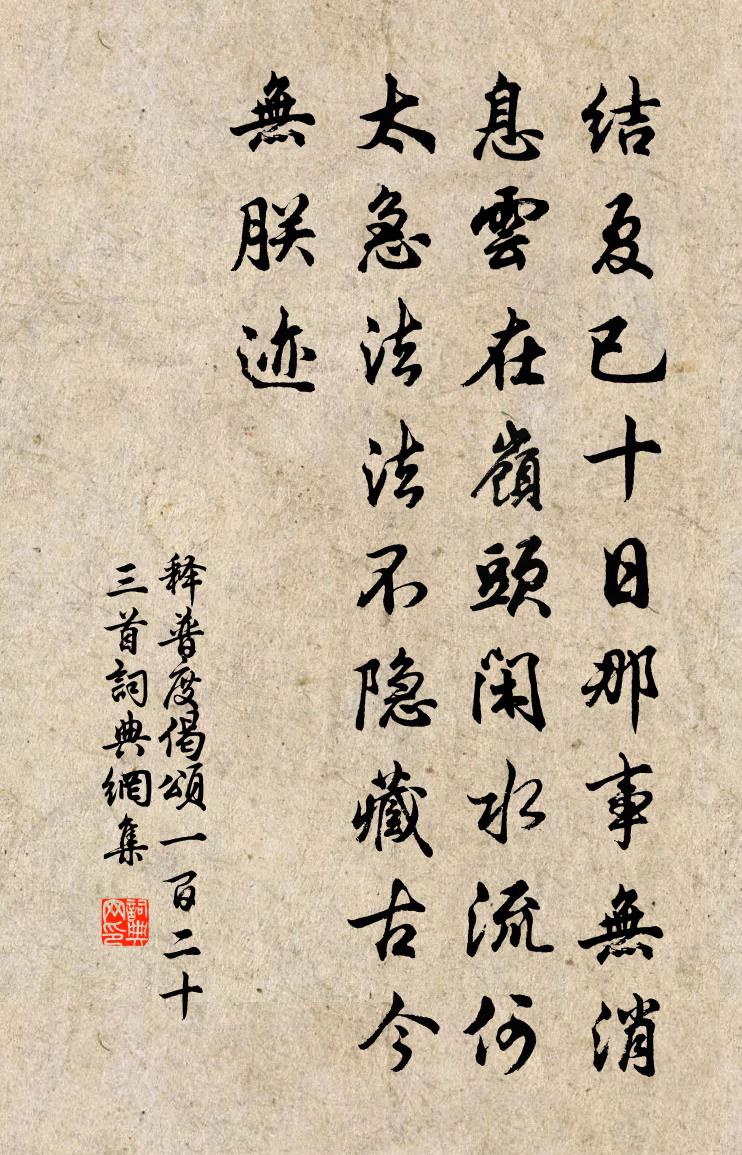 结夏已十日那事無消
息雲在嶺頭閑水流何
太急法法不隐藏古今
無朕迹
释普度偈頌一百二十
三首詞典網集
詞典
网印